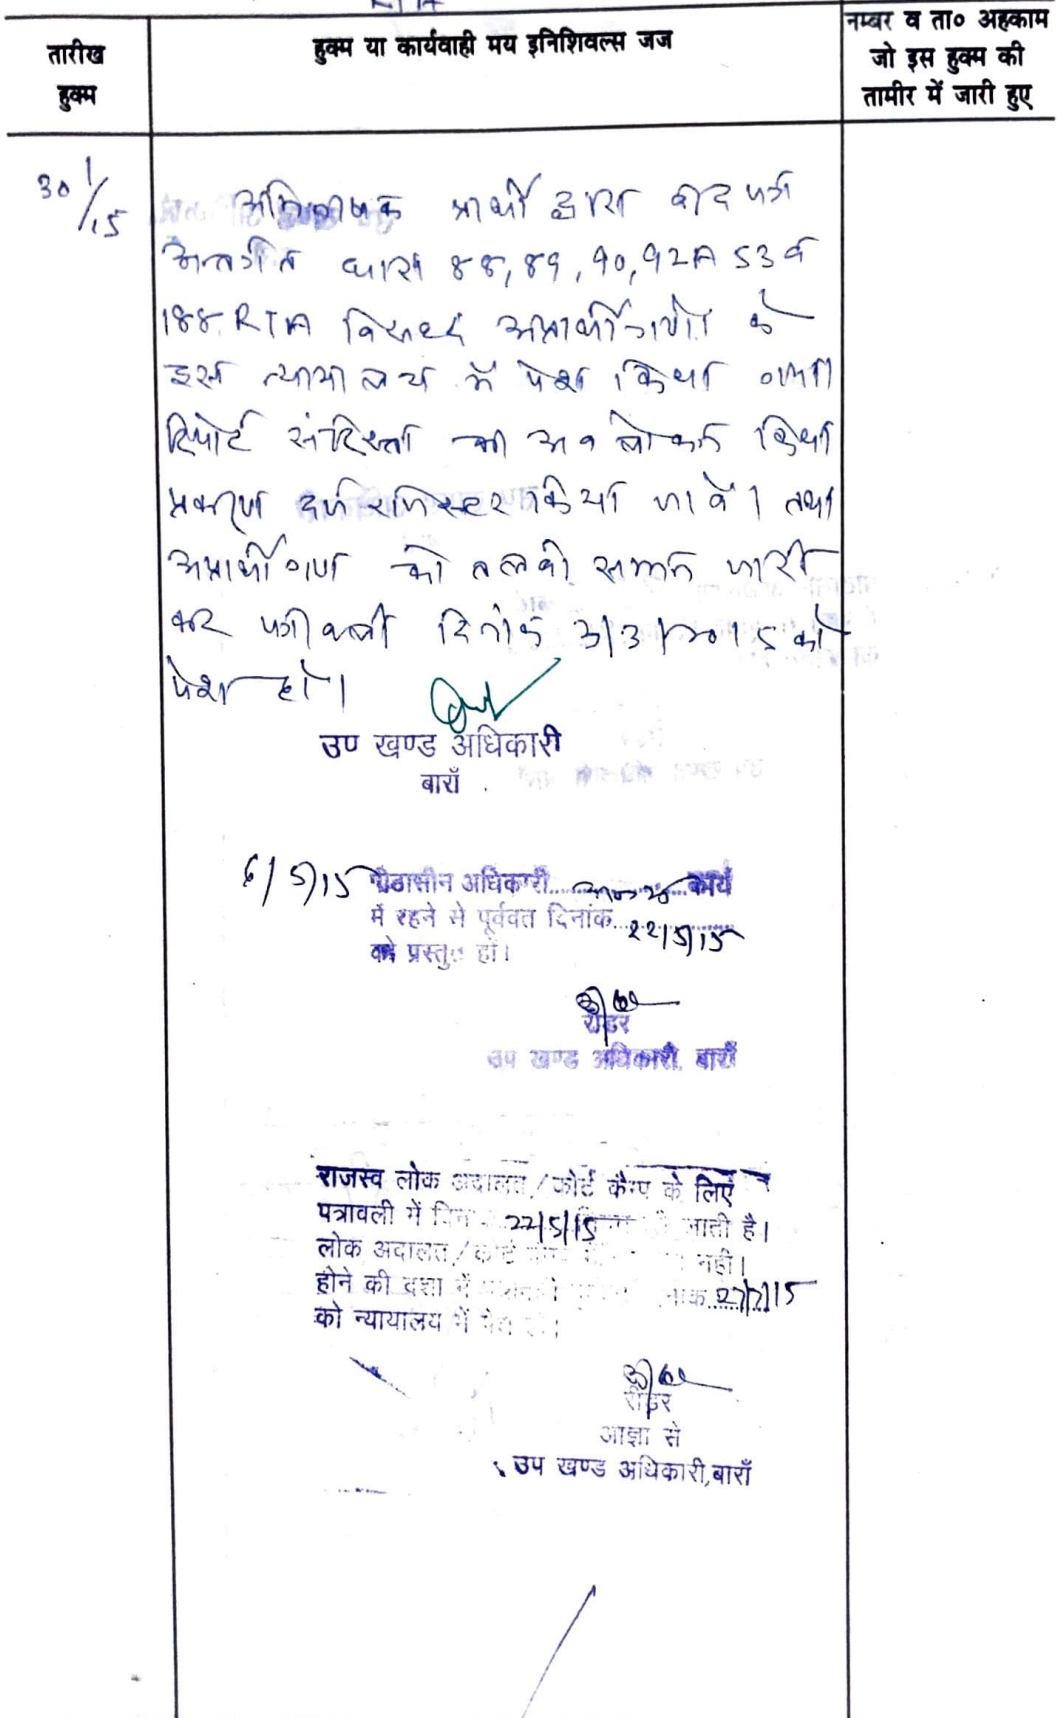 तारीख
हुक्म
हुक्म या कार्यवाही मय इनिशिवल्स जज
नम्बर व ता० अहकाम
जो इस हुक्म की
तामीर में जारी हुए
30/1/15
अभिभाषक प्रार्थी द्वारा वाद पत्र
अन्तर्गत धारा 88, 89, 90, 92A 53 व
188 RTA विरुद्ध अप्रार्थीगणों के
इस न्यायालय में पेश किया गया।
रिपोर्ट का अवलोकन किया
प्रकरण दर्ज रजिस्टर किया जावे। तथा
अप्रार्थीगण को तलबी सम्मन जारी
कर पत्रावली दिनांक 3/3/2015 को
पेश हो।
उप खण्ड अधिकारी
बाराँ
6/5/15 पीठासीन अधिकारी............कार्य
में रहने से पूर्ववत दिनांक 22/5/15
को प्रस्तुत हों।
रीडर
उप खण्ड अधिकारी, बाराँ
राजस्व लोक अदालत/कोर्ट कैम्प के लिए
पत्रावली में 22/5/15 जाती है।
लोक अदालत/कोर्ट नही।
होने की दशा में 27/7/15
को न्यायालय में पेश हो।
रीडर
आज्ञा से
उप खण्ड अधिकारी, बाराँ